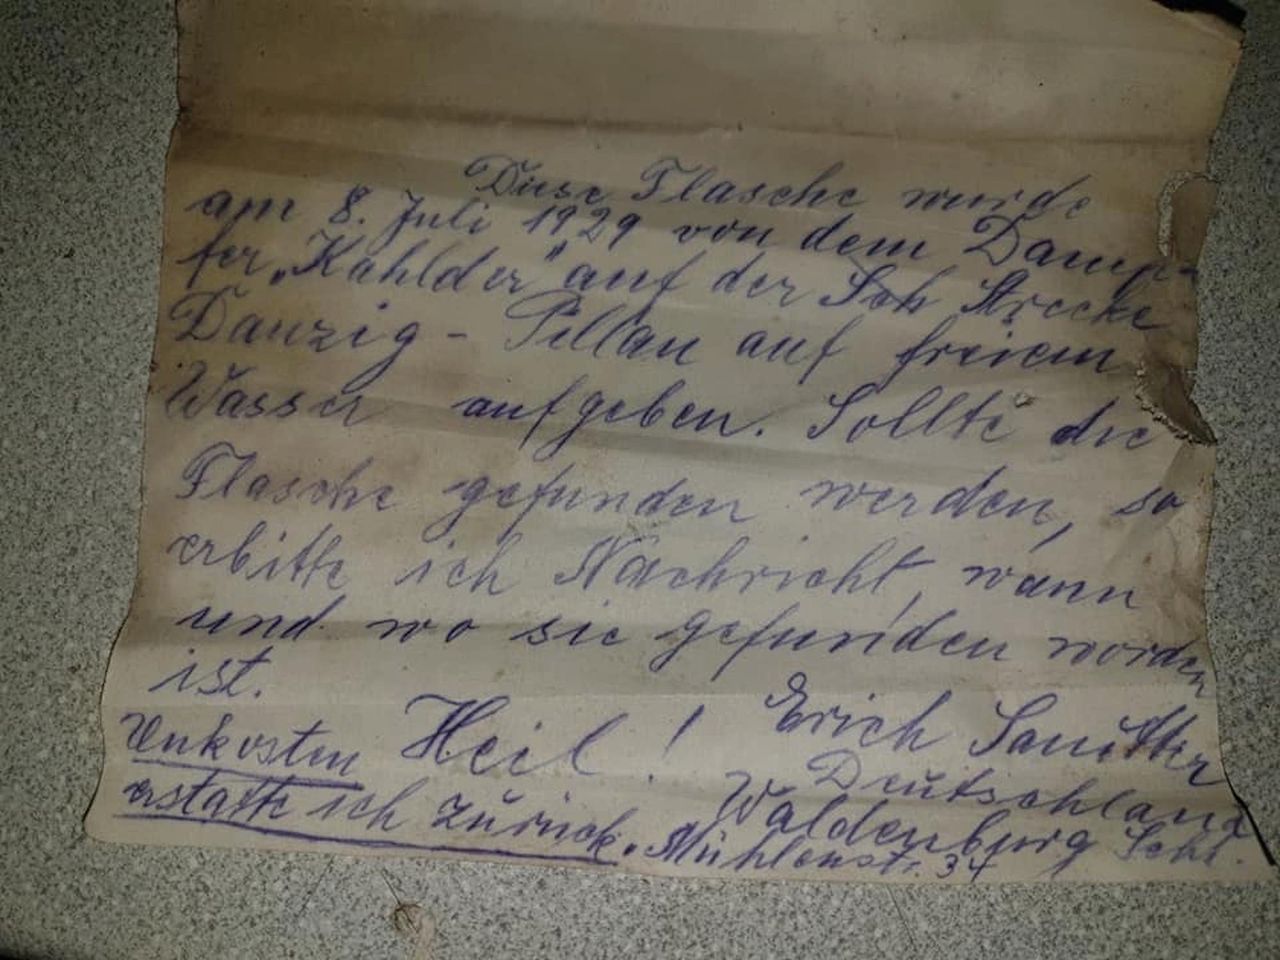 Diese Flasche wurde
am 8. Juli 1929 von dem Damp-
fer "Kahlder" auf der Strecke
Danzig - Pillau auf freiem
Wasser aufgeben. Sollte die
Flasche gefunden werden, so
erbitte ich Nachricht, wann
und wo sie gefunden worden
ist.
Heil! Erich
Unkosten Deutschland
erstatte ich zurück. Waldenburg Schl.
Mühlenstr. 34